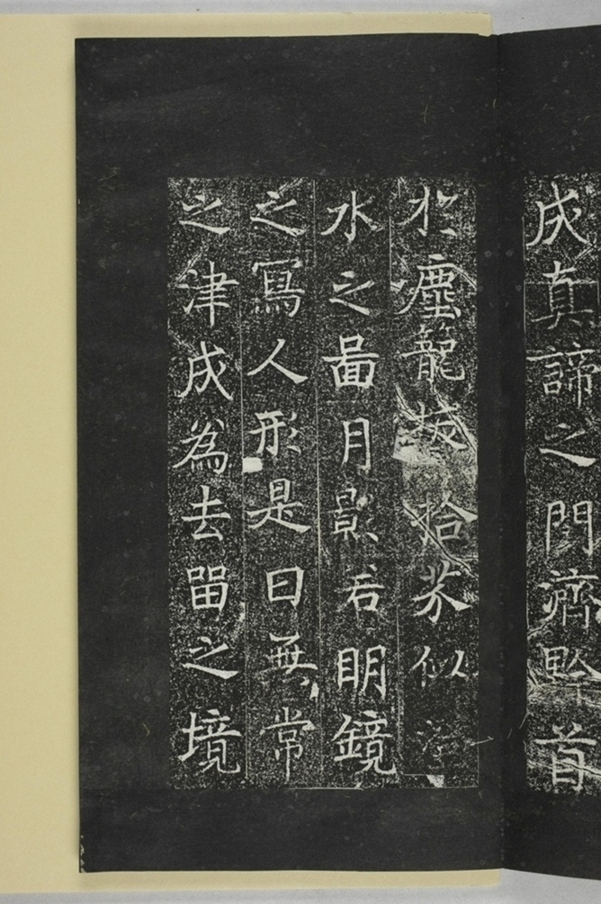 成真諦之門濟黔首
於塵籠拔拾芥似
水之啚月影若明鏡
之寫人形是曰無常
之津成爲去留之境